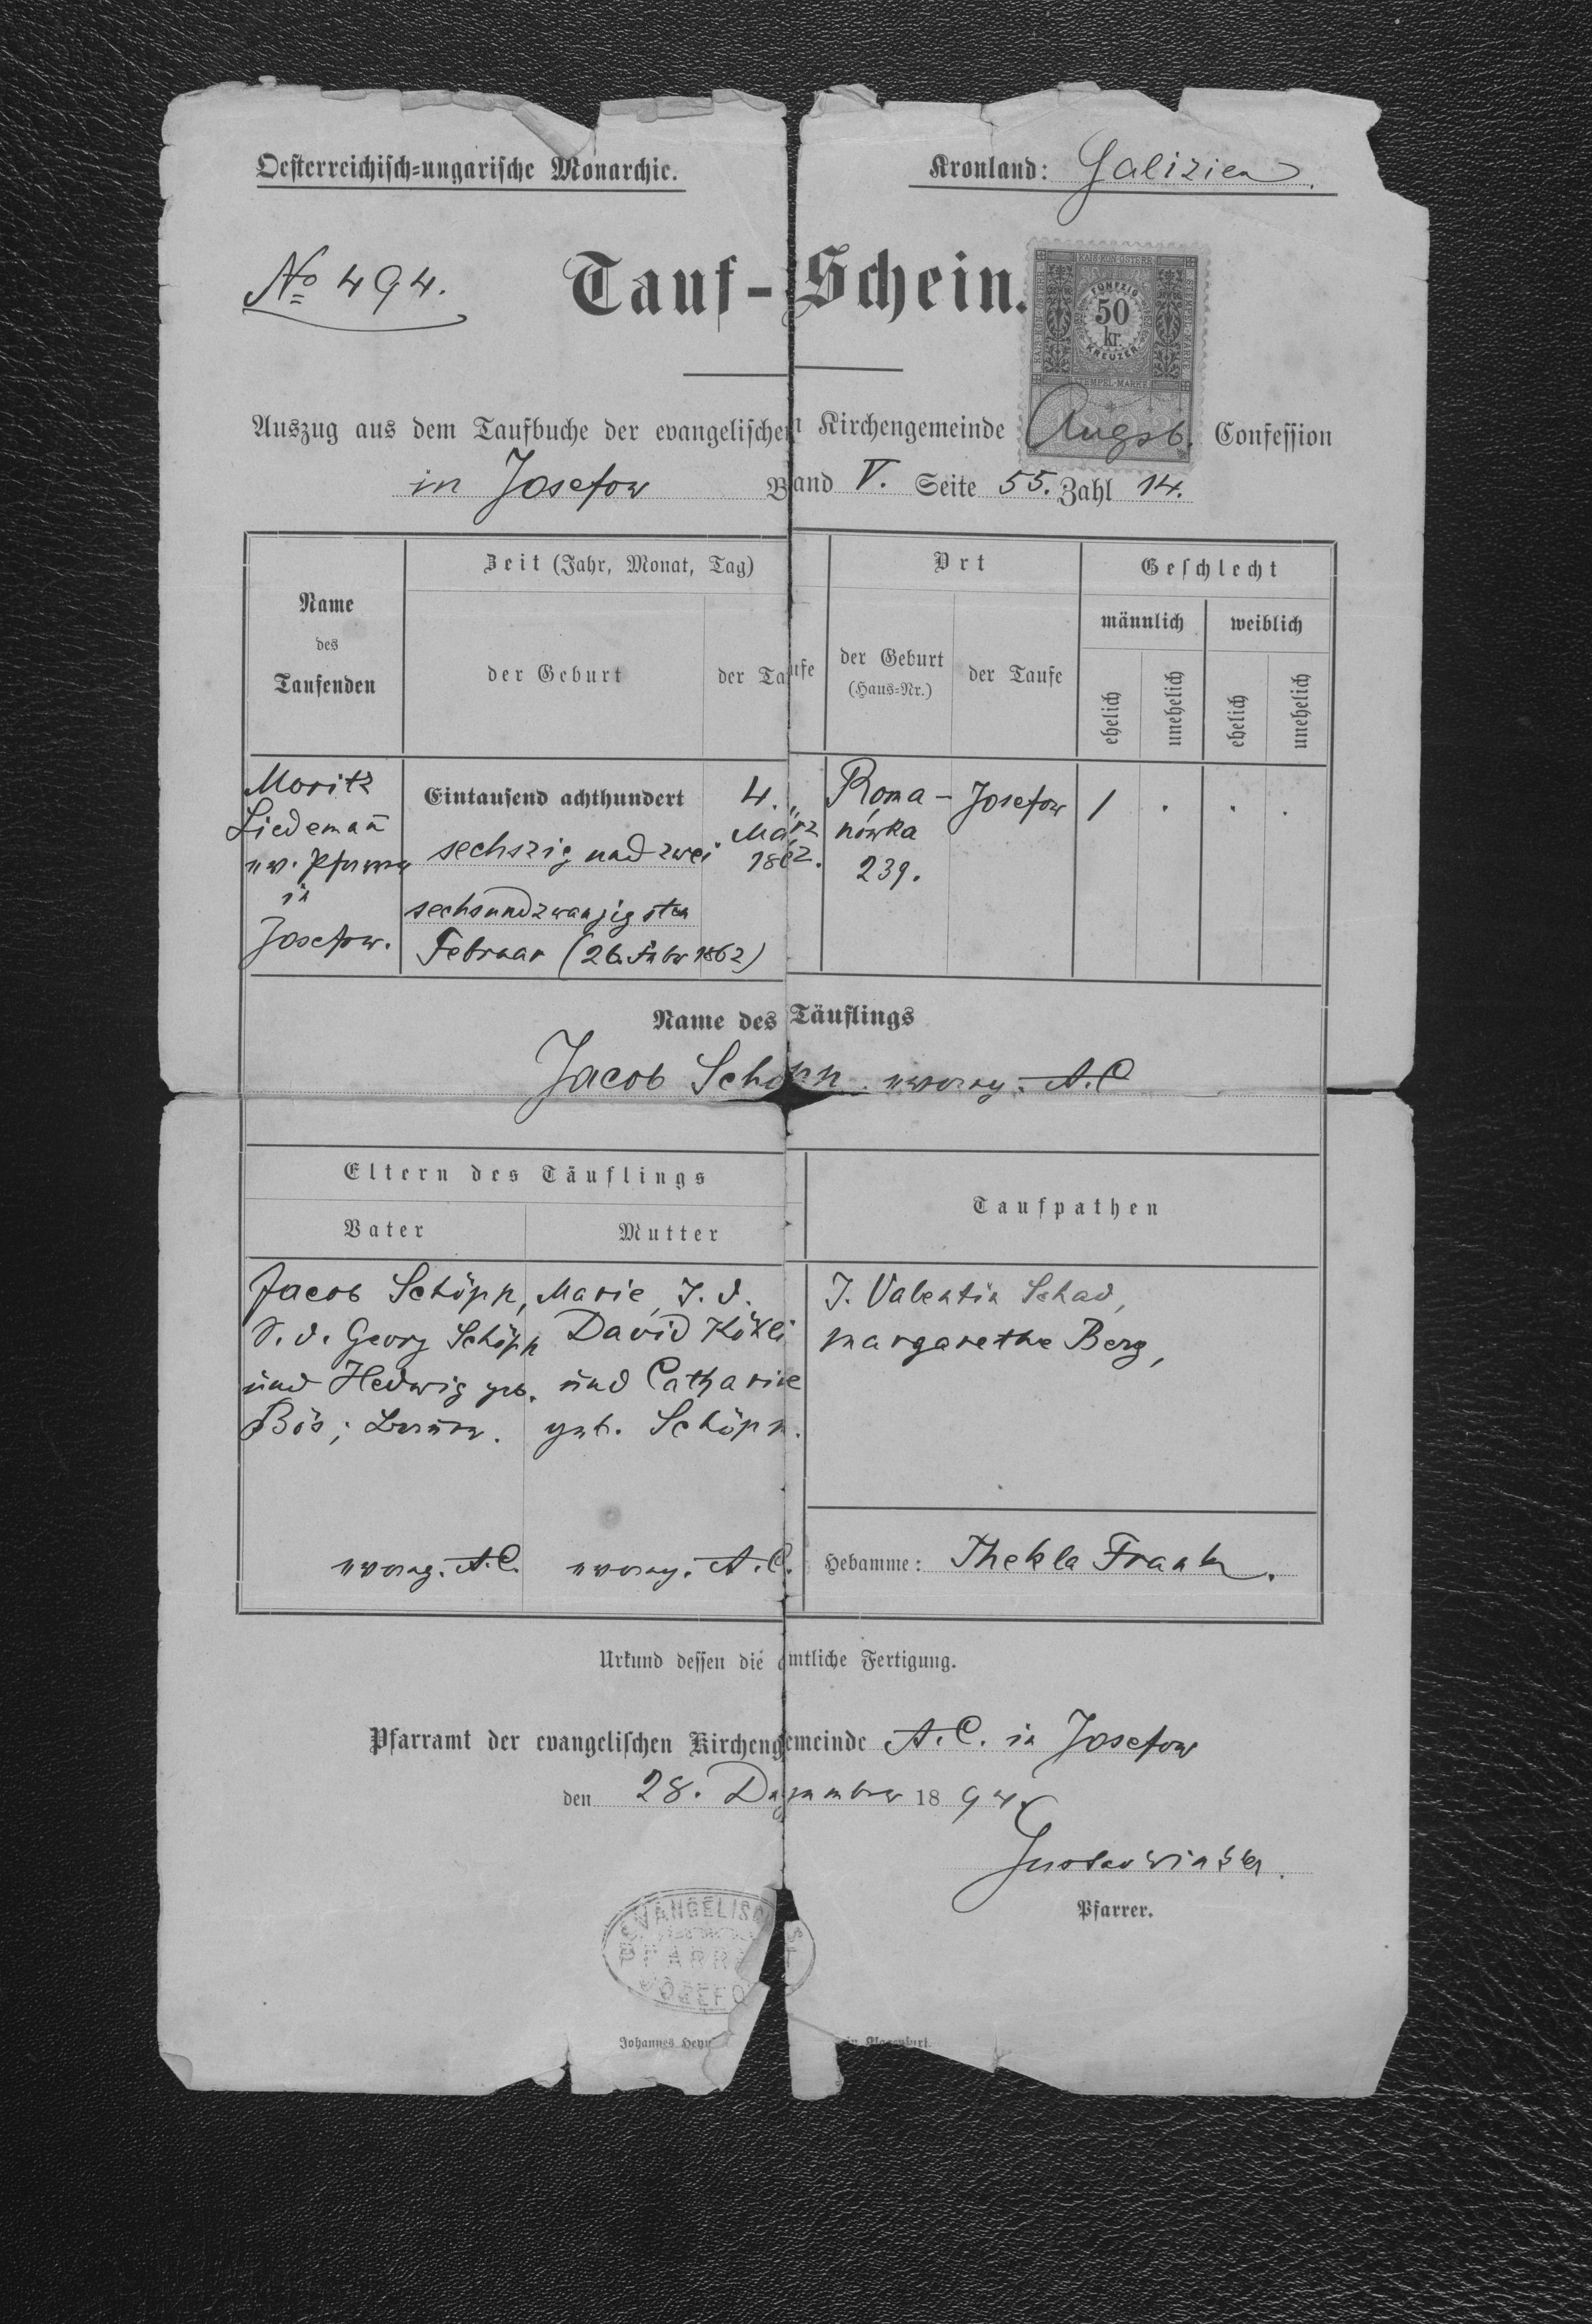 Oesterreichisch-ungarische Monarchie.
Kronland: Galizien.
No 494.
Tauf-Schein.
KAIS. KÖN. ÖSTERR.
FÜNFZIG
50
kr.
KREUZER
STEMPEL-MARKE
Auszug aus dem Taufbuche der evangelischen Kirchengemeinde Augsb. Confession
in Josefow Band V. Seite 55. Zahl 14.
Name
des
Taufenden
Zeit (Jahr, Monat, Tag)
der Geburt
der Taufe
Ort
der Geburt
(Haus-Nr.)
der Taufe
Geschlecht
männlich
weiblich
ehelich
unehelich
ehelich
unehelich
Moritz
Liedemañ
ev. Pfarrer
in
Josefow.
Eintausend achthundert
sechszig und zwei
sechsundzwanzigsten
Februar (26. Febr 1862)
4.
März
1862.
Roma-
nówka
239.
Josefow
1 . . .
Name des Täuflings
Jacob Schöpp. evang. A.C
Eltern des Täuflings
Vater
Mutter
Taufpathen
Jacob Schöpp,
S. d. Georg Schöpp
und Hedwig geb.
Bös;
evang. A.C.
Marie, T. d.
David
und Catharine
geb. Schöpp.
evang. A.C.
J. Valentin Schad,
Margarethe Berg,
Hebamme: Thekla Frank.
Urkund dessen die amtliche Fertigung.
Pfarramt der evangelischen Kirchengemeinde A.C. in Josefow
den 28. Dezember 1894.
Gustav
Pfarrer.
EVANGELISCH
PFARR
JOSEFO
Johannes Heyn in Klagenfurt.